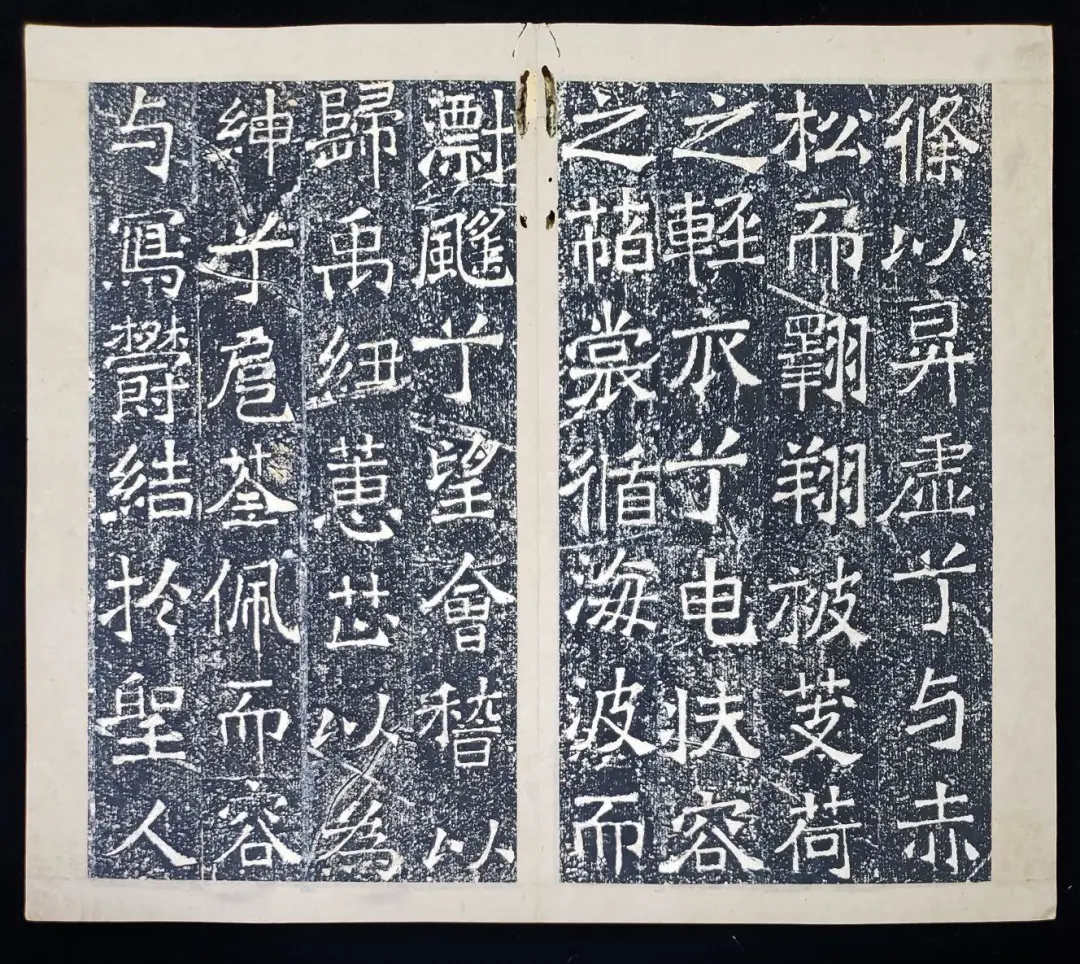 條以昇虛兮与赤
松而翱翔被芰荷
之輕衣兮曳扶容
之葩裳循海波而
漂颻兮望會稽以
歸禹紐蕙芷以為
紳兮扈荃佩而容
与寫欝結扵聖人